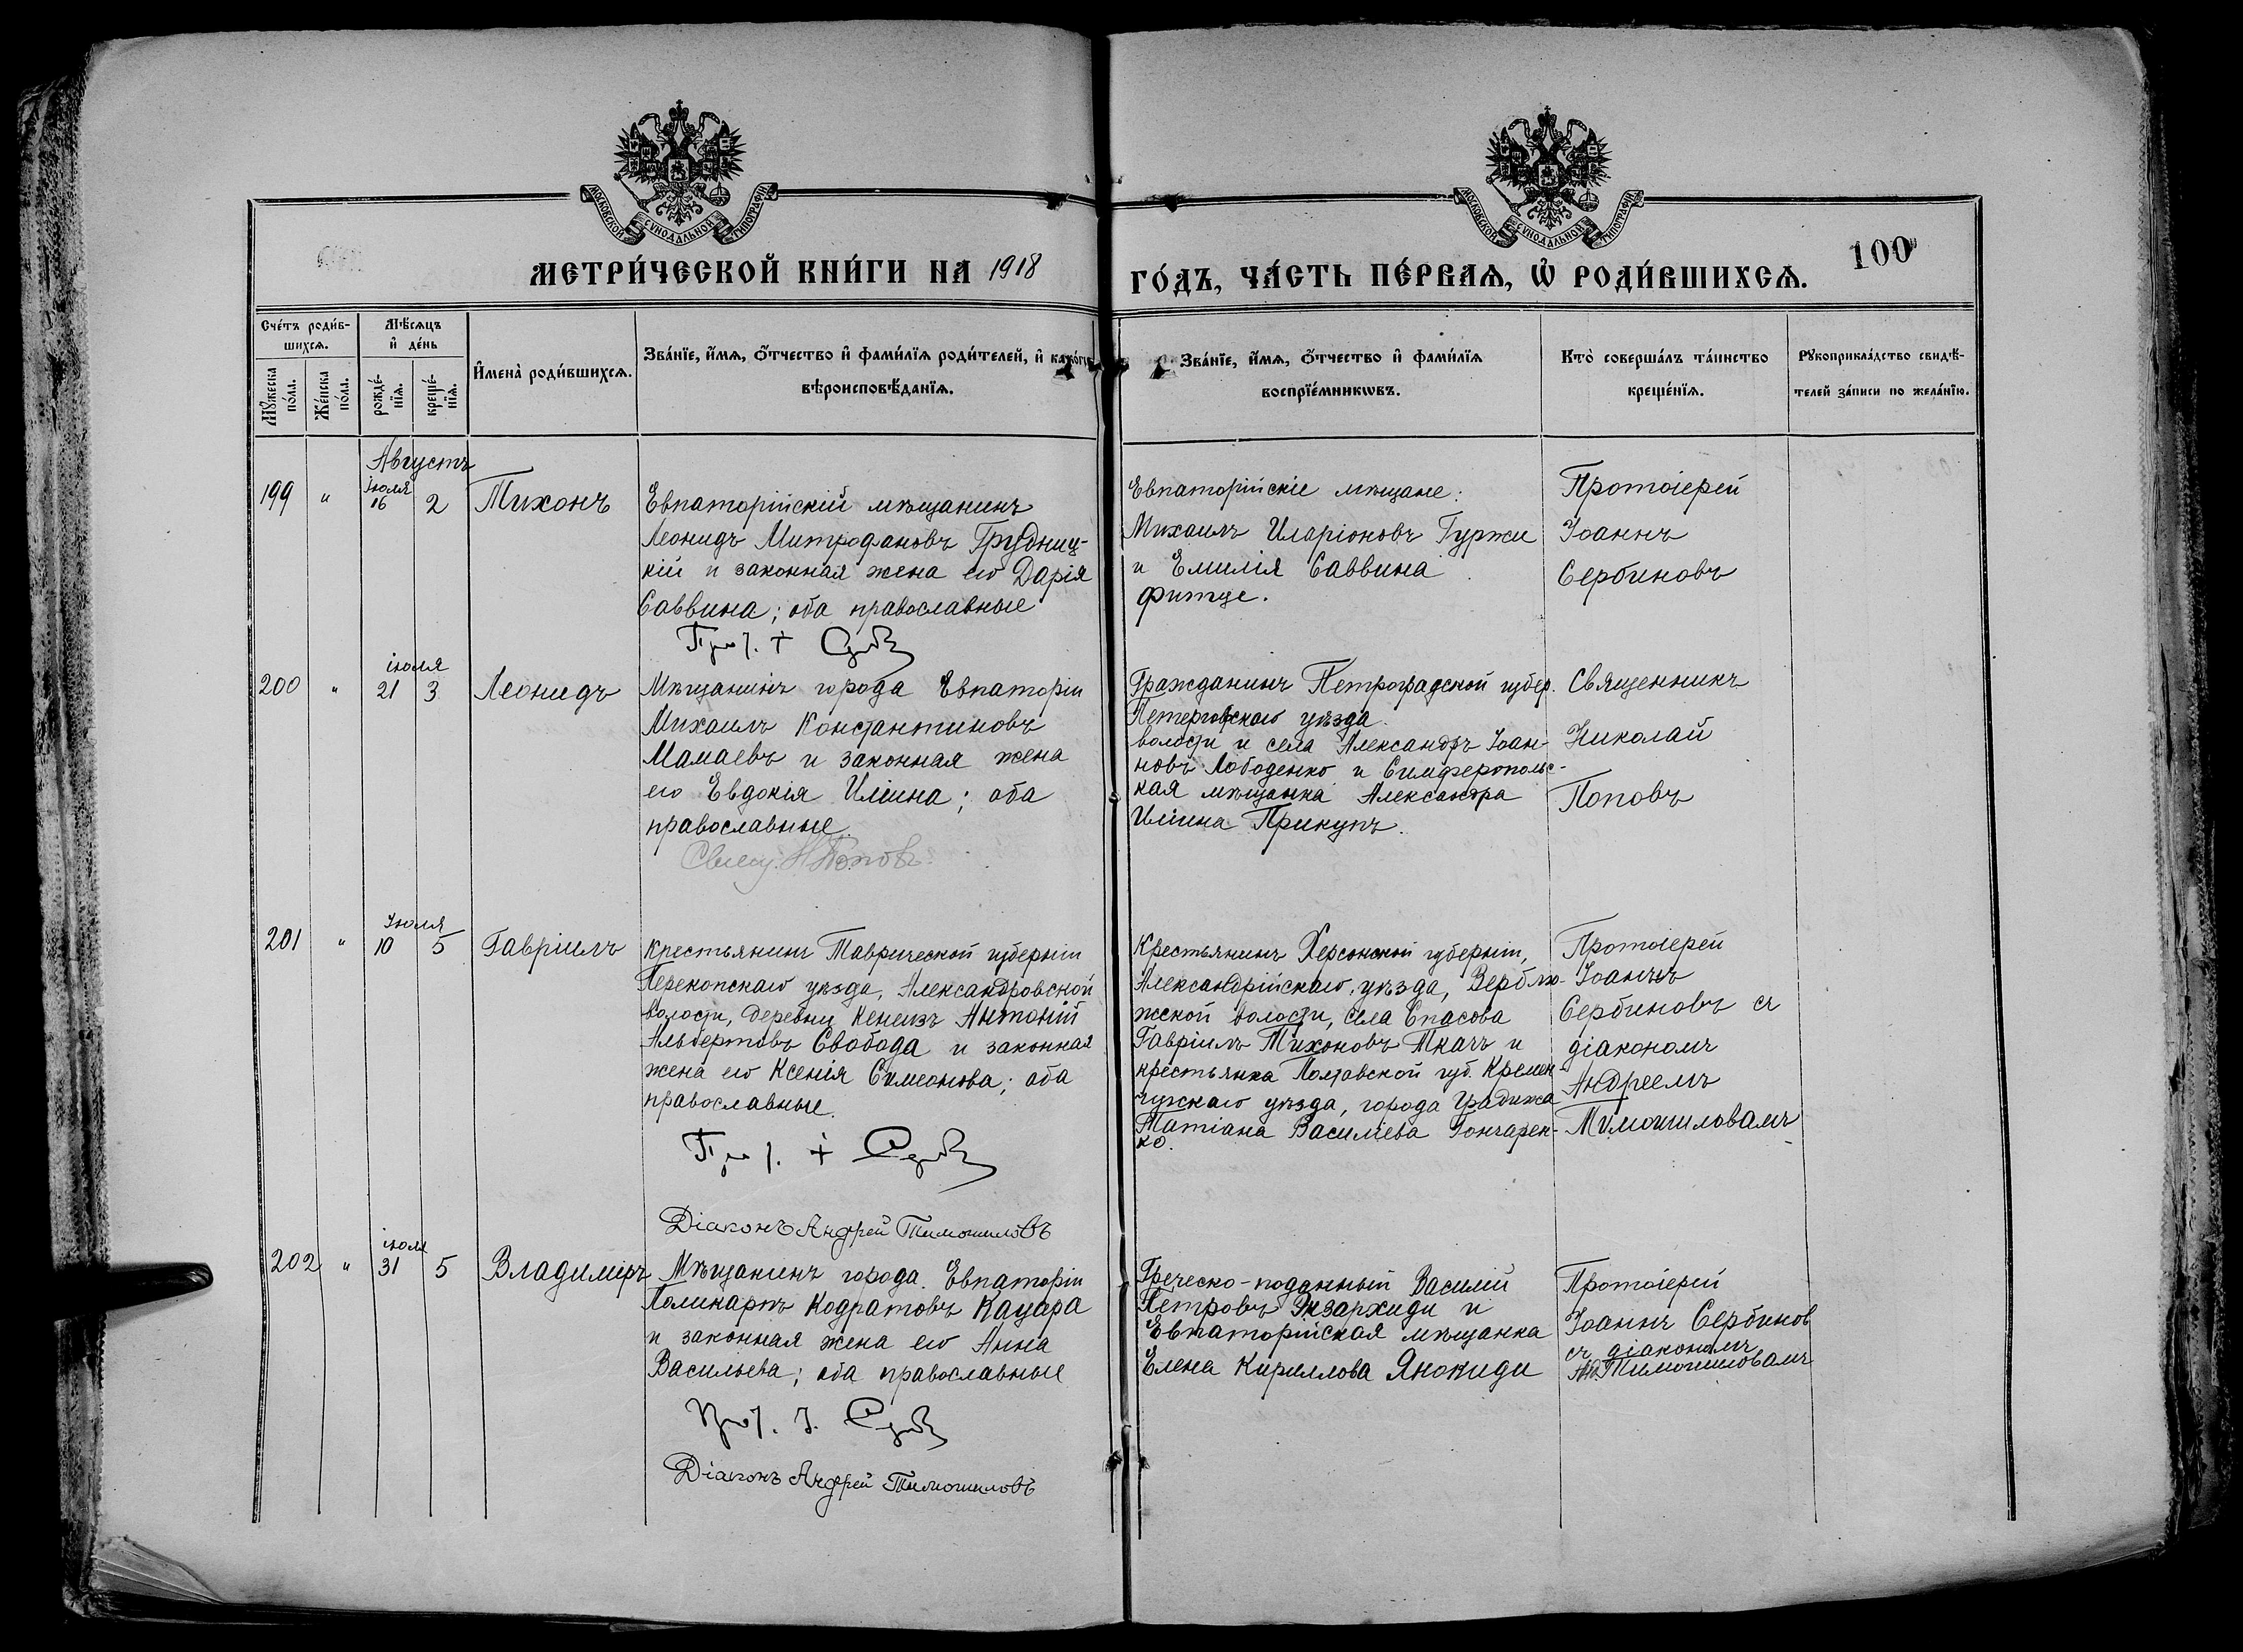 МОСКОВСКОЙ СѴНОДАЛЬНОЙ ТИПОГРАФІИ
МОСКОВСКОЙ СѴНОДАЛЬНОЙ ТИПОГРАФІИ
МЕТРИ́ЧЕСКОЙ КНИ́ГИ НА 1918
ГО́ДЪ, ЧА́СТЬ ПЕ́РВАѦ, Ѡ҆ РОДИ́ВШИХСѦ.
100
Сче́тъ роди́в-
шихсѧ.
Мѣ́сѧцъ
и҆ де́нь
Мꙋ́жеска
по́ла.
Же́нска
по́ла.
рожде́-
нїѧ.
креще́-
нїѧ.
И҆мена̀ роди́вшихсѧ.
Зва́нїе, и҆́мѧ, ѻ҆́тчество и҆ фами́лїѧ роди́телей, и҆ како́гѡ
вѣроисповѣ́данїѧ.
Зва́нїе, и҆́мѧ, ѻ҆́тчество и҆ фами́лїѧ
воспрїе́мникѡвъ.
Кто̀ соверша́лъ та́инство
креще́нїѧ.
Рꙋкоприкла́дство свидѣ́-
телей за́писи по жела́нїю.
Августъ
199 " іюля 16 2 Тихонъ
Евпаторійскій мѣщанинъ
Леонидъ Митрофановъ Грудниц-
кій и законная жена его Дарія
Саввина; оба православные
Евпаторійскіе мѣщане:
Михаилъ Иларіоновъ Гуржи
и Емилія Саввина
Фитце.
Протоіерей
Іоаннъ
Сербиновъ
іюля
200 " 21 3 Леонидъ
Мѣщанинъ города Евпаторіи
Михаилъ Константиновъ
Мамаевъ и законная жена
его Евдокія Иліина; оба
православные.
Свящ. Н Поповъ.
Гражданинъ Петроградской губер.
Петергофскаго уѣзда
волости и села Александръ Іоан-
новъ Лободенко и Симферопольс-
кая мѣщанка Александра
Иліина Прикупъ.
Священникъ
Николай
Поповъ
Іюля
201 " 10 5 Гавріилъ
Крестьянинъ Таврической губерніи
Перекопскаго уѣзда, Александровской
волости, деревни Кенегизъ Антоній
Альбертовъ Свобода и законная
жена его Ксенія Симеонова; оба
православные.
Діаконъ Андрей Тимошиловъ
Крестьянинъ Херсонской губерніи,
Александрійскаго уѣзда, Верблю-
жской волости, села Спасова
Гавріилъ Тихоновъ Ткачъ и
крестьянка Полтавской губ. Кремен-
чугскаго уѣзда, города Градижа
Татіана Василіева Гончарен-
ко.
Протоіерей
Іоаннъ
Сербиновъ съ
діакономъ
Андреемъ
Тимошиловамъ
іюля
202 " 31 5 Владиміръ
Мѣщанинъ города Евпаторіи
Поликарпъ Кодратовъ Кацара
и законная жена его Анна
Васильева; оба православные
Діаконъ Андрей Тимошиловъ
Греческо-подданный Василій
Петровъ Экзархиди и
Евпаторійская мѣщанка
Елена Кириллова Янокиди
Протоіерей
Іоаннъ Сербинов
съ діакономъ
Тимошиловамъ